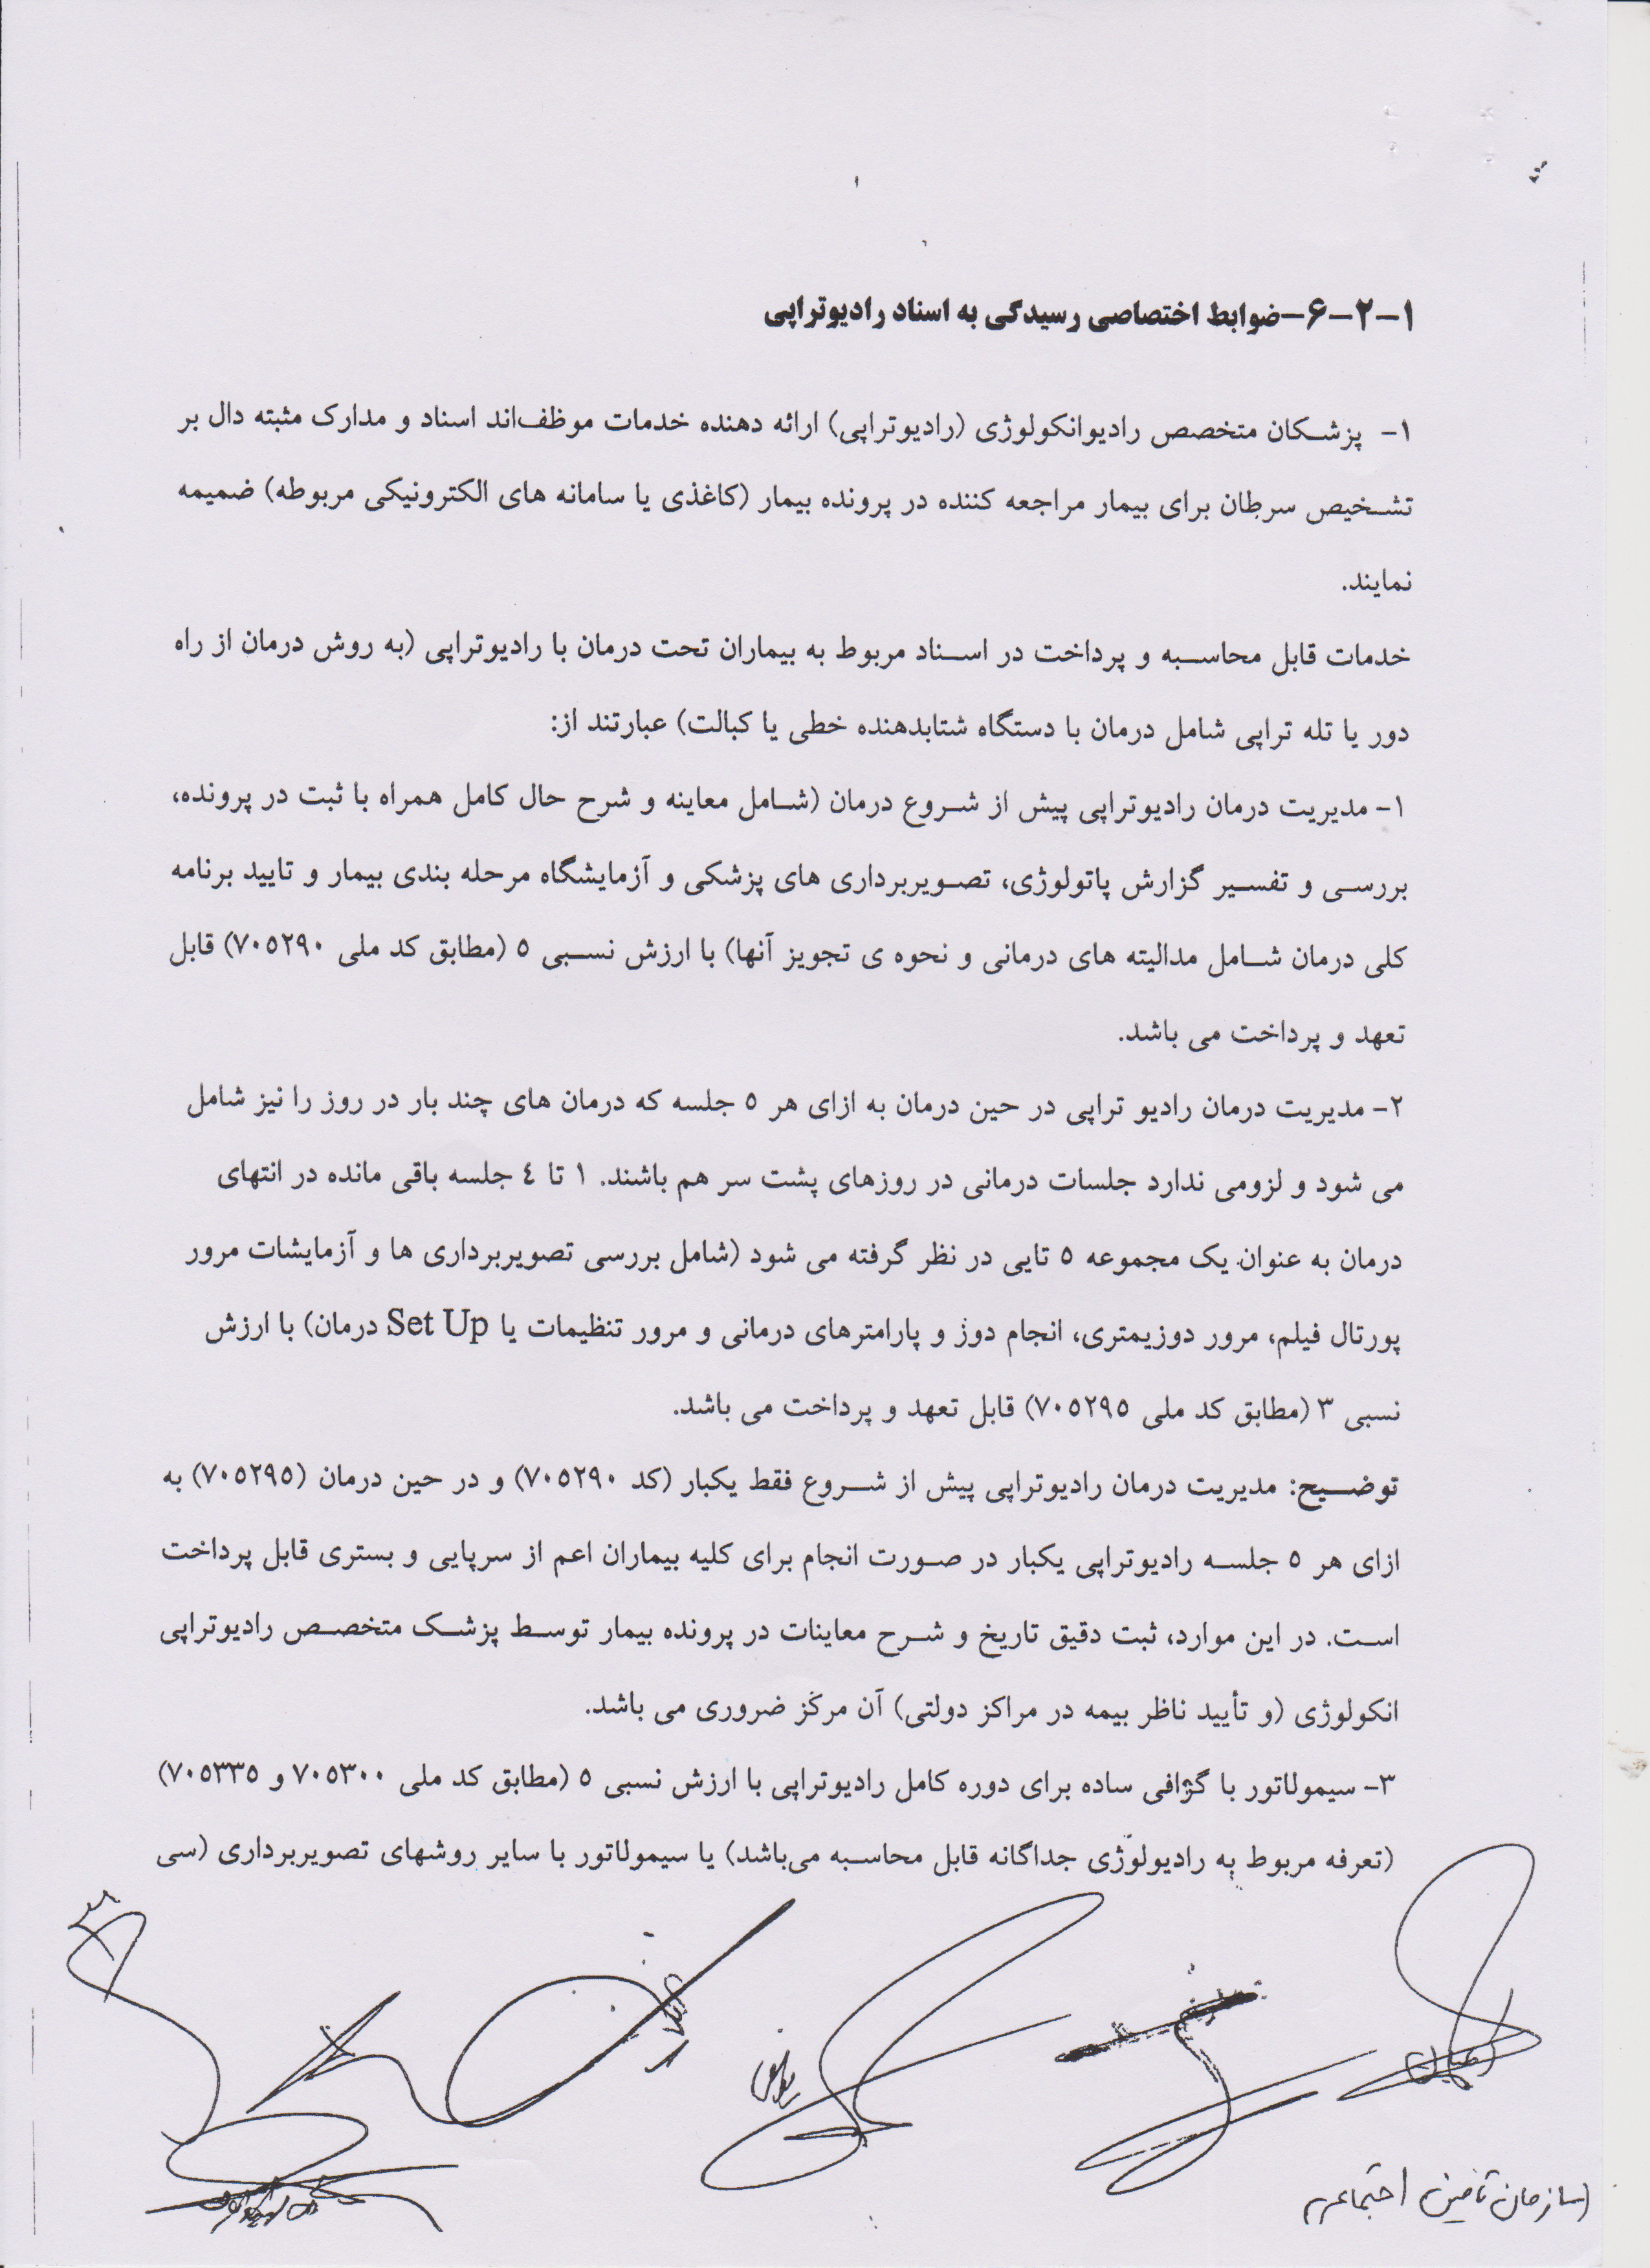 ۱-۲-۶-ضوابط اختصاصی رسیدگی به اسناد رادیوتراپی
۱- پزشکان متخصص رادیوانکولوژی (رادیوتراپی) ارائه دهنده خدمات موظف‌اند اسناد و مدارک مثبته دال بر
تشخیص سرطان برای بیمار مراجعه کننده در پرونده بیمار (کاغذی یا سامانه های الکترونیکی مربوطه) ضمیمه
نمایند.
خدمات قابل محاسبه و پرداخت در اسناد مربوط به بیماران تحت درمان با رادیوتراپی (به روش درمان از راه
دور یا تله تراپی شامل درمان با دستگاه شتابدهنده خطی یا کبالت) عبارتند از:
۱- مدیریت درمان رادیوتراپی پیش از شروع درمان (شامل معاینه و شرح حال کامل همراه با ثبت در پرونده،
بررسی و تفسیر گزارش پاتولوژی، تصویربرداری های پزشکی و آزمایشگاه مرحله بندی بیمار و تایید برنامه
کلی درمان شامل مدالیته های درمانی و نحوه ی تجویز آنها) با ارزش نسبی ۵ (مطابق کد ملی ۷۰۵۲۹۰) قابل
تعهد و پرداخت می باشد.
۲- مدیریت درمان رادیو تراپی در حین درمان به ازای هر ۵ جلسه که درمان های چند بار در روز را نیز شامل
می شود و لزومی ندارد جلسات درمانی در روزهای پشت سر هم باشند. ۱ تا ٤ جلسه باقی مانده در انتهای
درمان به عنوان یک مجموعه ۵ تایی در نظر گرفته می شود (شامل بررسی تصویربرداری ها و آزمایشات مرور
پورتال فیلم، مرور دوزیمتری، انجام دوز و پارامترهای درمانی و مرور تنظیمات یا Set Up درمان) با ارزش
نسبی ۳ (مطابق کد ملی ۷۰۵۲۹۵) قابل تعهد و پرداخت می باشد.
توضیح: مدیریت درمان رادیوتراپی پیش از شروع فقط یکبار (کد ۷۰۵۲۹۰) و در حین درمان (۷۰۵۲۹۵) به
ازای هر ۵ جلسه رادیوتراپی یکبار در صورت انجام برای کلیه بیماران اعم از سرپایی و بستری قابل پرداخت
است. در این موارد، ثبت دقیق تاریخ و شرح معاینات در پرونده بیمار توسط پزشک متخصص رادیوتراپی
انکولوژی (و تأیید ناظر بیمه در مراکز دولتی) آن مرکز ضروری می باشد.
۳- سیمولاتور با گرافی ساده برای دوره کامل رادیوتراپی با ارزش نسبی ۵ (مطابق کد ملی ۷۰۵۳۰۰ و ۷۰۵۳۳۵)
(تعرفه مربوط به رادیولوژی جداگانه قابل محاسبه می‌باشد) یا سیمولاتور با سایر روشهای تصویربرداری (سی
سازمان تأمین اجتماعی